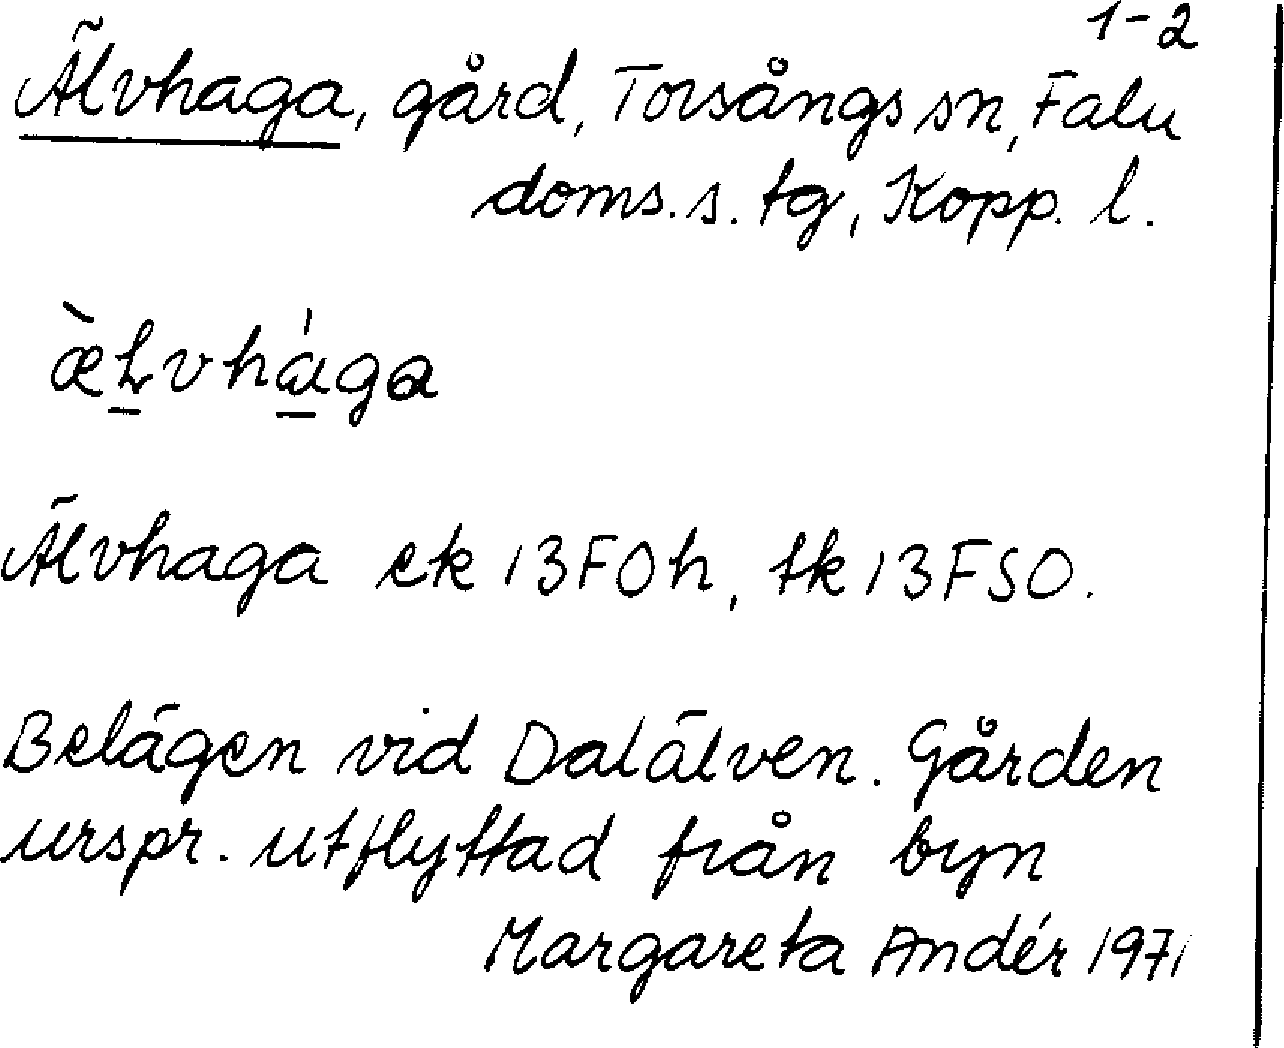 1-2
Älvhaga, gård, Torsångs sn, Falu
doms.s. tg, Kopp. l.
æ̀ḻvhá̱ga
Älvhaga ek 13F0h, tk 13FSO.
Belägen vid Dalälven. Gården
urspr. utflyttad från byn
Margareta Andér 1971